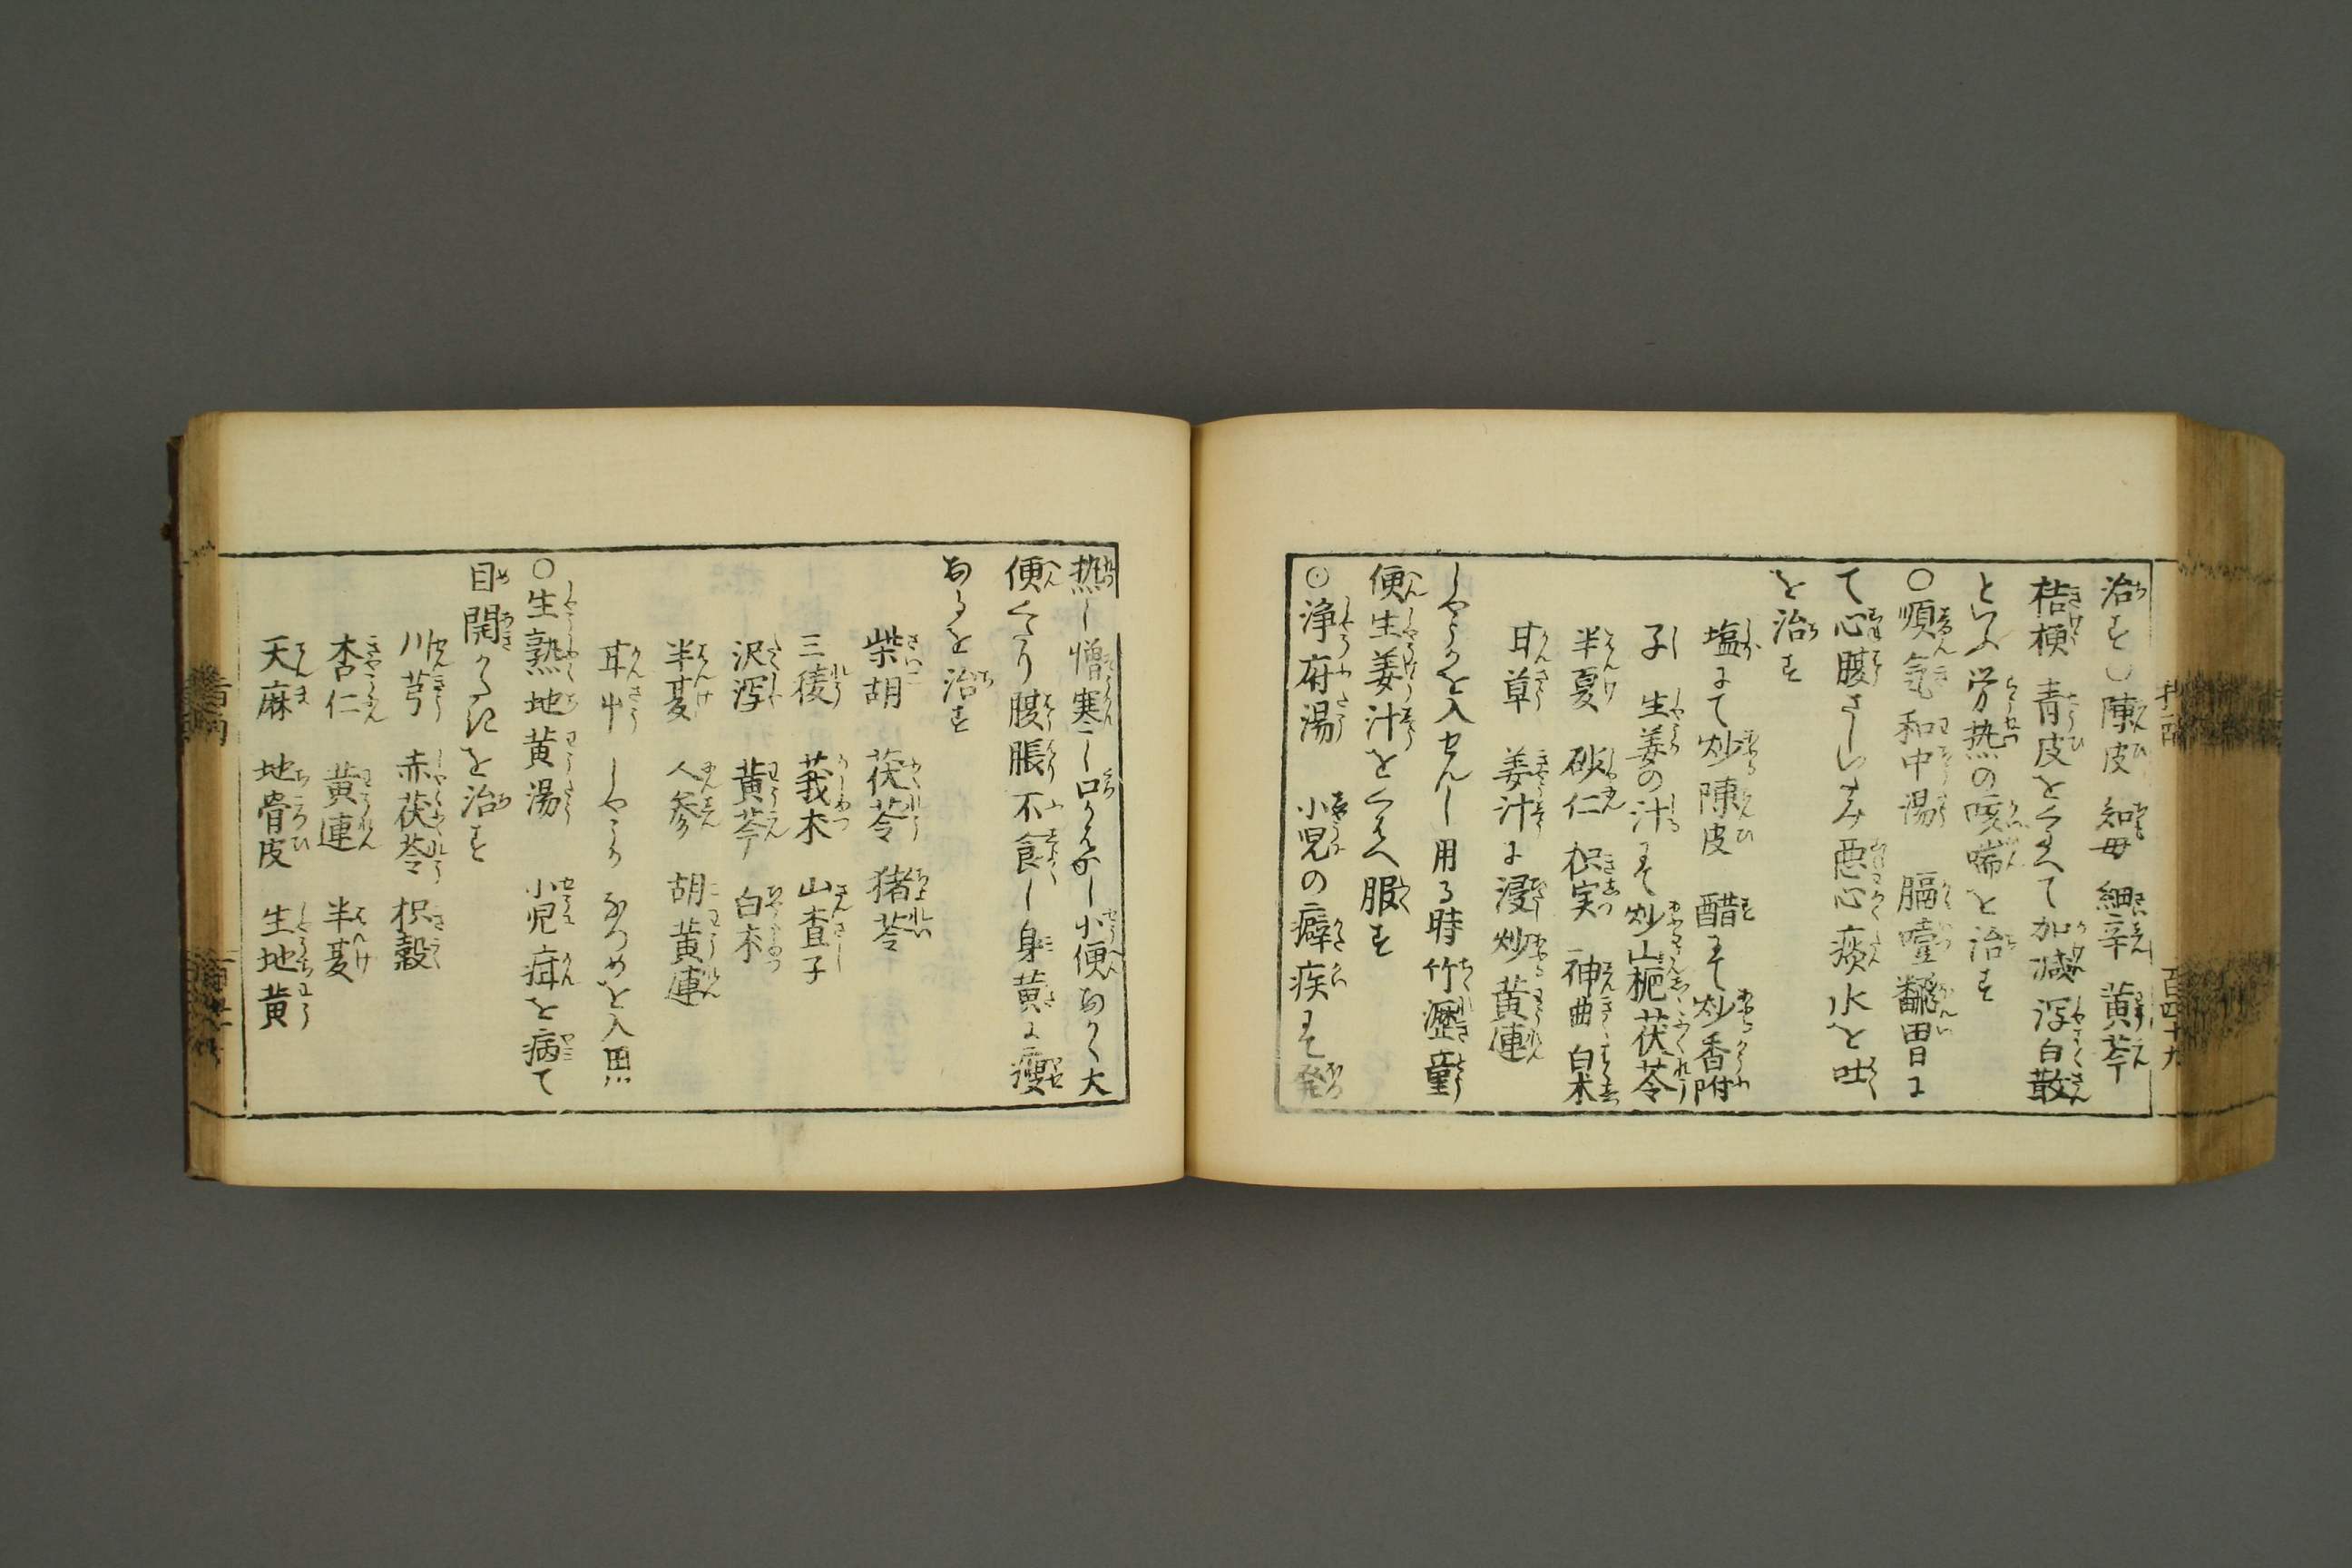 治す○陳皮 知母 細辛 黄芩
桔梗 青皮をくはへて加減泻白散
といふ労热の咳喘を治す
○順気和中湯 膈噎翻胃に
て心腹さしいたみ悪心痰水を吐
を治す
塩にて炒陳皮 醋にて炒香附
子 生姜の汁にて炒山梔茯苓
半夏 砂仁 枳実 神曲 白朮
甘草 姜汁に浸炒黄連
しやうかを入せんし用る時竹瀝童
便生姜汁をくはへ服す
⊙浄府湯 小児の癖疾にて発
热し憎寒し口かはかし小便あかく大
便くたり腹脹不食し身黄に瘦
あるを治す
柴胡 茯苓 猪苓
三稜 莪朮 山査子
沢泻 黄芩 白朮
半夏 人参 胡黄連
甘草 しやうか なつめを入用
○生熟地黄湯 小児疳を病て
目開かさるを治す
川芎 赤茯苓 枳殻
杏仁 黄連 半夏
天麻 地骨皮 生地黄
百四十九